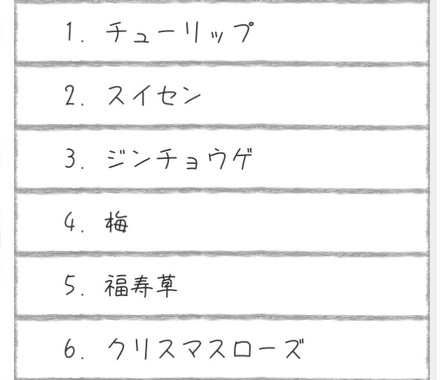 1. チューリップ
2. スイセン
3. ジンチョウゲ
4. 梅
5. 福寿草
6. クリスマスローズ